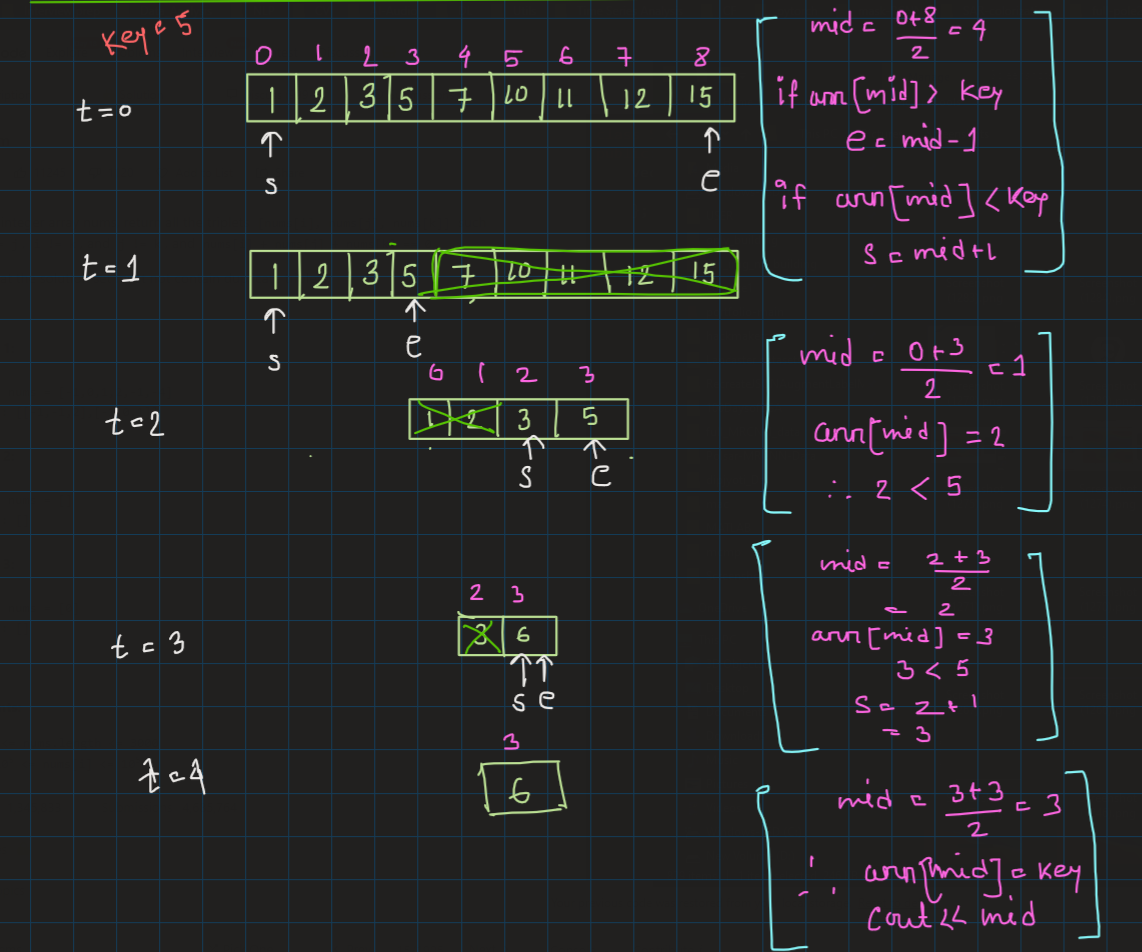 key = 5
0 1 2 3 4 5 6 7 8
t=0 1 2 3 5 7 10 11 12 15
s e
mid = 0+8/2 = 4
if arr[mid] > key
e = mid-1
if arr[mid] < key
s = mid+1
t=1 1 2 3 5 7 10 11 12 15
s e
0 1 2 3
t=2 1 2 3 5
s e
mid = 0+3/2 = 1
arr[mid] = 2
∴ 2 < 5
2 3
t = 3 3 6
s e
mid = 2+3/2
= 2
arr[mid] = 3
3 < 5
s = 2+1
= 3
3
t=4 6
mid = 3+3/2 = 3
∴ arr[mid] = key
cout << mid